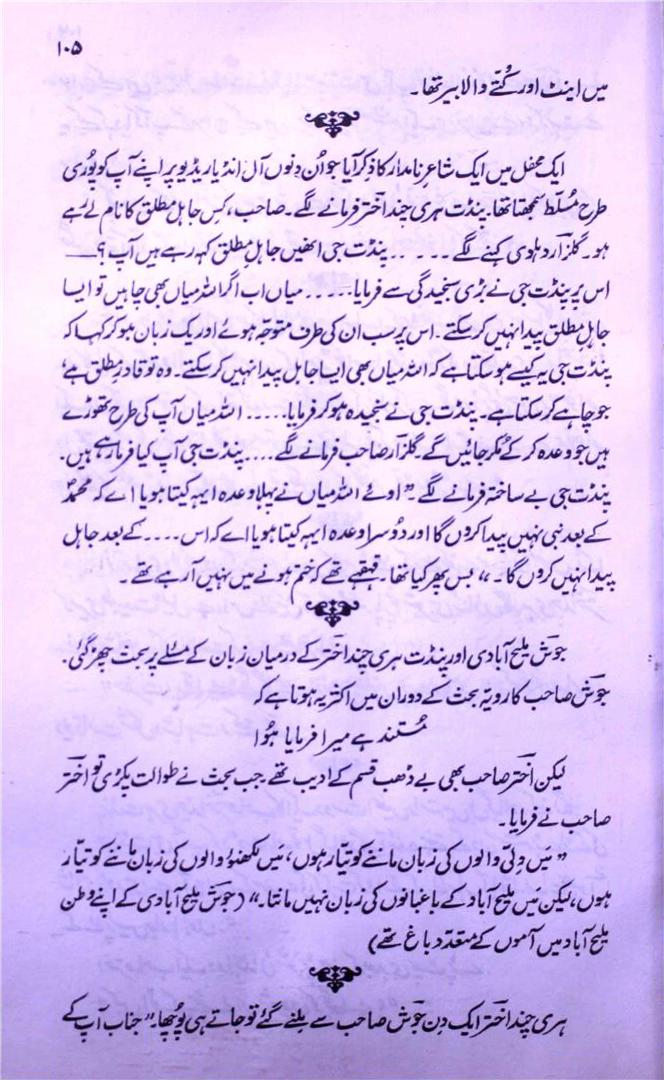 ۱۰۵
میں اینٹ اور کُتے والا بیر تھا۔
ایک محفل میں ایک شاعرِ نامدار کا ذکر آیا جو اُن دِنوں آل انڈیا ریڈیو پر اپنے آپ کو پُوری
طرح مُسلّط سمجھتا تھا۔ پنڈت ہری چند اخترؔ فرمانے لگے۔ صاحب، کِس جاہلِ مطلق کا نام لے رہے
ہو۔ گلزار دہلوی کہنے لگے ۔۔۔۔۔۔ پنڈت جی انھیں جاہلِ مطلق کہہ رہے ہیں آپ؟ ــــ
اس پر پنڈت جی نے بڑی سنجیدگی سے فرمایا۔۔۔۔۔ میاں اب اگر اللہ میاں بھی چاہیں تو ایسا
جاہلِ مطلق پیدا نہیں کر سکتے۔ اس پر سب ان کی طرف متوجّہ ہوئے اور یک زبان ہو کر کہا کہ
پنڈت جی یہ کیسے ہو سکتا ہے کہ اللہ میاں بھی ایسا جاہل پیدا نہیں کر سکتے۔ وہ تو قادرِ مطلق ہے،
جو چاہے کر سکتا ہے۔ پنڈت جی نے سنجیدہ ہو کر فرمایا۔۔۔۔۔ اللہ میاں آپ کی طرح تھوڑے
ہیں جو وعدہ کر کے مُکر جائیں گے۔ گلزارؔ صاحب فرمانے لگے۔۔۔۔ پنڈت جی آپ کیا فرما رہے ہیں۔
پنڈت جی بے ساختہ فرمانے لگے۔ ”اوئے اللہ میاں نے پہلا وعدہ ایہہ کیتا ہویا اے کہ محمدؐ
کے بعد نبی نہیں پیدا کروں گا اور دُوسرا وعدہ ایہہ کیتا ہویا اے کہ اس ۔۔۔۔ کے بعد جاہل
پیدا نہیں کروں گا۔“ بس پھر کیا تھا۔ قہقہے تھے کہ ختم ہونے میں نہیں آ رہے تھے۔
جوشؔ ملیح آبادی اور پنڈت ہری چند اخترؔ کے درمیان زبان کے مسئلے پر بحث چھڑ گئی۔
جوشؔ صاحب کا رویّہ بحث کے دوران میں اکثر یہ ہوتا ہے کہ
مُستند ہے میرا فرمایا ہُوا
لیکن اخترؔ صاحب بھی بے ڈھب قسم کے ادیب تھے جب بحث نے طوالت پکڑی تو اخترؔ
صاحب نے فرمایا۔
”مَیں دِلّی والوں کی زبان ماننے کو تیّار ہوں، مَیں لکھنؤ والوں کی زبان ماننے کو تیّار
ہوں، لیکن مَیں ملیح آباد کے باغبانوں کی زبان نہیں مانتا۔“ (جوشؔ ملیح آبادی کے اپنے وطن
ملیح آباد میں آموں کے متعدّد باغ تھے)
ہری چند اخترؔ ایک دِن جوشؔ صاحب سے مِلنے گئے تو جاتے ہی پُوچھا۔ ”جناب آپ کے